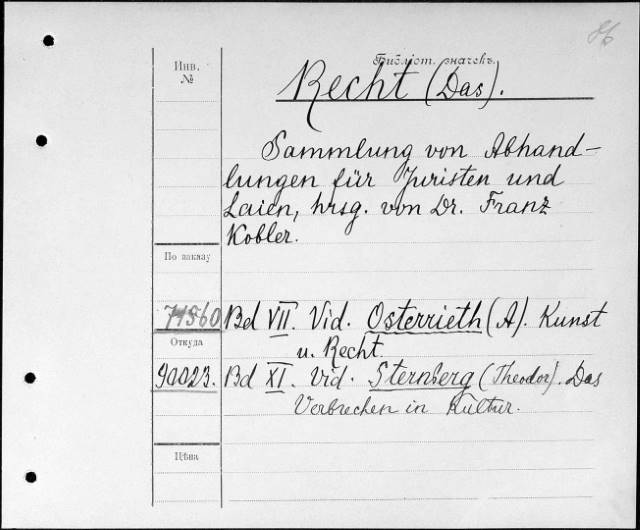 Инв.
№
Библіот. значекъ.
Recht (Das).
Sammlung von Abhand-
lungen für Juristen und
Laien, hrsg. von Dr. Franz
Kobler.
По заказу
71560 Bd VII. Vid. Osterrieth (A). Kunst
u. Recht.
Откуда
90023. Bd XI. Vid. Sternberg (Theodor). Das
Verbrechen in Kultur.
Цѣна